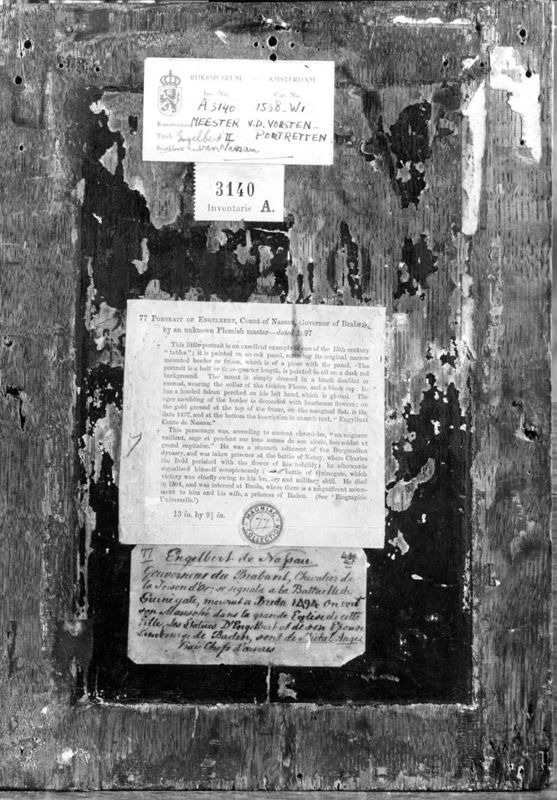 RIJKSMUSEUM — AMSTERDAM
Inv. No. Cat. No.
A 3140 1538-W1
MEESTER V.D. VORSTEN-
Titel: Engelbert II PORTRETTEN
van Nassau
3140
Inventaris A.
77 PORTRAIT OF ENGELBERT, Count of Nassau, Governor of Brabant,
by an unknown Flemish master—dated 1497
This little portrait is an excellent example of one of the 15th century
"tables"; it is painted on an oak panel, retaining its original narrow
mounted border or frame, which is of a piece with the panel. The
portrait is a half or three-quarter length, is painted in oil on a dark red
background. The count is simply dressed in a black doublet or
surcoat, wearing the collar of the Golden Fleece, and a black cap; he
has a hooded falcon perched on his left hand, which is gloved. The
ogee moulding of the border is decorated with heartsease flowers; on
the gold ground at the top of the frame, on the marginal flat, is the
date 1497, and at the bottom the inscription in church text, "Engylbert
Conte de Nassau."
This personage was, according to ancient chronicles, "un seigneur
vaillant, sage et prudent sur tous autres de son siècle, bon soldat et
grand capitaine." He was a staunch adherent of the Burgundian
dynasty, and was taken prisoner at the battle of Nancy, where Charles
the Bold perished with the flower of his nobility; he afterwards
signalised himself conspicuously at the battle of Guinegate, which
victory was chiefly owing to his bravery and military skill. He died
in 1504, and was interred at Breda, where there is a magnificent monu-
ment to him and his wife, a princess of Baden. (See 'Biographie
Universelle.')
13 in. by 9½ in.
MAGNIAC COLLECTION
77
77 Engelbert de Nassau
Gouverneur du Brabant, Chevalier de
la Toison d'Or, se signala a la Battaille de
Guinegate, mourut a Breda 1494 On voit
son Mausolée dans la grande Eglise de cette
Ville, Les Statues D'Engelbert et de son Epouse
Limbourg de Baden, sont de Michel Ange
Vrais Chefs d'œuvres